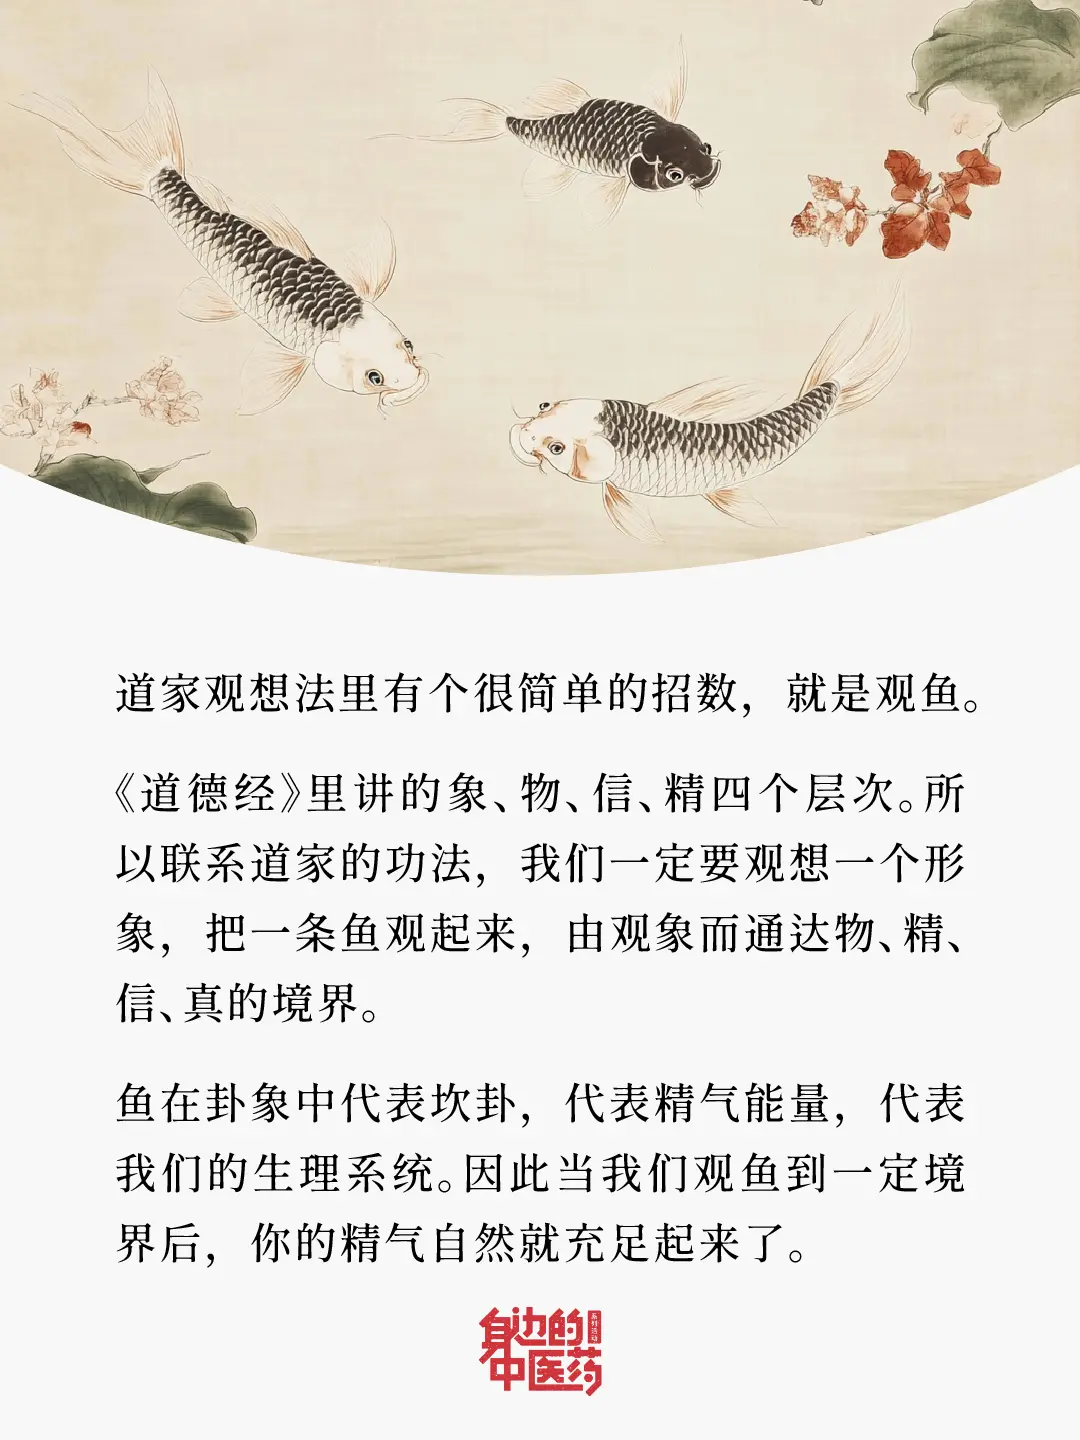 道家观想法里有个很简单的招数，就是观鱼。
《道德经》里讲的象、物、信、精四个层次。所
以联系道家的功法，我们一定要观想一个形
象，把一条鱼观起来，由观象而通达物、精、
信、真的境界。
鱼在卦象中代表坎卦，代表精气能量，代表
我们的生理系统。因此当我们观鱼到一定境
界后，你的精气自然就充足起来了。
身边的
系列活动
中医药